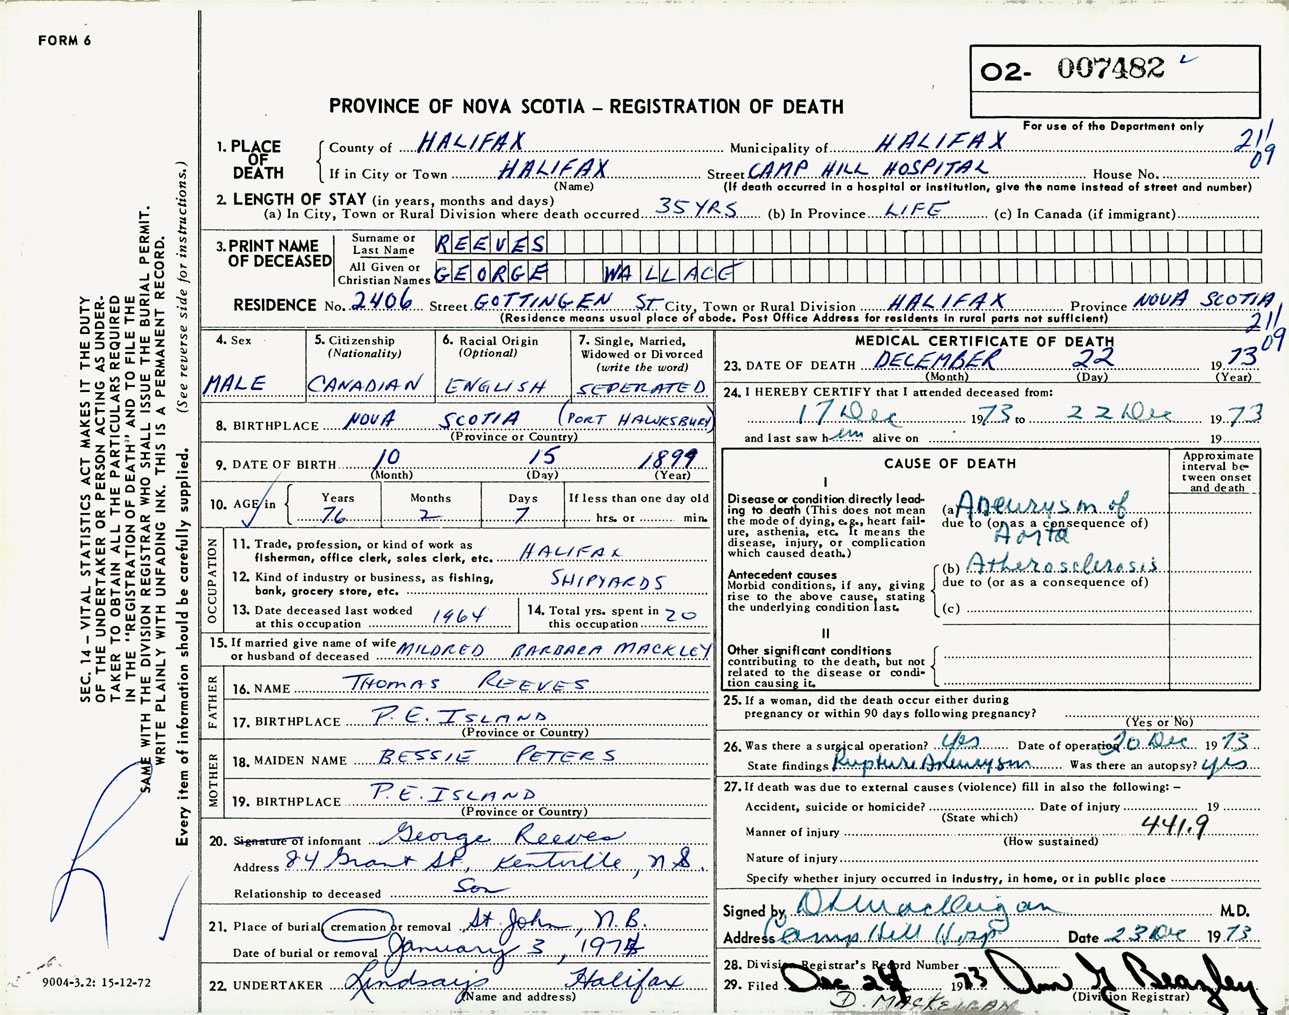 FORM 6
O2- 007482
PROVINCE OF NOVA SCOTIA – REGISTRATION OF DEATH
For use of the Department only
1. PLACE OF DEATH
County of HALIFAX Municipality of HALIFAX 211
If in City or Town HALIFAX Street CAMP HILL HOSPITAL House No. 09
(Name) (If death occurred in a hospital or institution, give the name instead of street and number)
2. LENGTH OF STAY (in years, months and days)
(a) In City, Town or Rural Division where death occurred 35 YRS (b) In Province LIFE (c) In Canada (if immigrant)
3. PRINT NAME OF DECEASED
Surname or Last Name REEVES
All Given or Christian Names GEORGE WALLACE
RESIDENCE No. 2406 Street GOTTINGEN ST City, Town or Rural Division HALIFAX Province NOVA SCOTIA
(Residence means usual place of abode. Post Office Address for residents in rural parts not sufficient) 211
09
4. Sex
MALE
5. Citizenship
(Nationality)
CANADIAN
6. Racial Origin
(Optional)
ENGLISH
7. Single, Married,
Widowed or Divorced
(write the word)
SEPERATED
8. BIRTHPLACE NOVA SCOTIA (PORT HAWKSBURY)
(Province or Country)
9. DATE OF BIRTH 10 15 1899
(Month) (Day) (Year)
10. AGE in
Years Months Days If less than one day old
76 2 7 hrs. or min.
OCCUPATION
11. Trade, profession, or kind of work as
fisherman, office clerk, sales clerk, etc. HALIFAX
12. Kind of industry or business, as fishing,
bank, grocery store, etc. SHIPYARDS
13. Date deceased last worked
at this occupation 1964
14. Total yrs. spent in
this occupation 20
15. If married give name of wife
or husband of deceased MILDRED BARBARA MACKLEY
FATHER
16. NAME THOMAS REEVES
17. BIRTHPLACE P.E. ISLAND
(Province or Country)
MOTHER
18. MAIDEN NAME BESSIE PETERS
19. BIRTHPLACE P.E. ISLAND
(Province or Country)
20. Signature of informant George Reeves
Address 84 Grant St., Kentville, N.S.
Relationship to deceased Son
21. Place of burial cremation or removal St. John, N.B.
Date of burial or removal January 3, 1974
22. UNDERTAKER Lindsay's Halifax
(Name and address)
MEDICAL CERTIFICATE OF DEATH
23. DATE OF DEATH DECEMBER 22 1973
(Month) (Day) (Year)
24. I HEREBY CERTIFY that I attended deceased from:
17 Dec 1973 to 22 Dec 1973
and last saw h em alive on 19
CAUSE OF DEATH
Approximate
interval be-
tween onset
and death
I
Disease or condition directly lead-
ing to death (This does not mean
the mode of dying, e.g., heart fail-
ure, asthenia, etc. It means the
disease, injury, or complication
which caused death.)
(a) Aneurysm of
due to (or as a consequence of)
Aorta
Antecedent causes
Morbid conditions, if any, giving
rise to the above cause, stating
the underlying condition last.
(b) Atherosclerosis
due to (or as a consequence of)
(c)
II
Other significant conditions
contributing to the death, but not
related to the disease or condi-
tion causing it.
25. If a woman, did the death occur either during
pregnancy or within 90 days following pregnancy?
(Yes or No)
26. Was there a surgical operation? yes Date of operation 20 Dec 1973
State findings Rupture Aneurysm Was there an autopsy? yes
27. If death was due to external causes (violence) fill in also the following: –
Accident, suicide or homicide? Date of injury 19
(State which)
Manner of injury 441.9
(How sustained)
Nature of injury
Specify whether injury occurred in industry, in home, or in public place
Signed by M.D.
Address Camp Hill Hosp Date 23 Dec 1973
28. Division Registrar's Record Number
29. Filed Dec 24 1973 Ann G Beazley
(Division Registrar)
D. MACKEIGAN
SEC. 14 – VITAL STATISTICS ACT MAKES IT THE DUTY
OF THE UNDERTAKER OR PERSON ACTING AS UNDER-
TAKER TO OBTAIN ALL THE PARTICULARS REQUIRED
IN THE "REGISTRATION OF DEATH" AND TO FILE THE
SAME WITH THE DIVISION REGISTRAR WHO SHALL ISSUE THE BURIAL PERMIT.
WRITE PLAINLY WITH UNFADING INK. THIS IS A PERMANENT RECORD.
Every item of information should be carefully supplied. (See reverse side for instructions.)
9004-3.2: 15-12-72